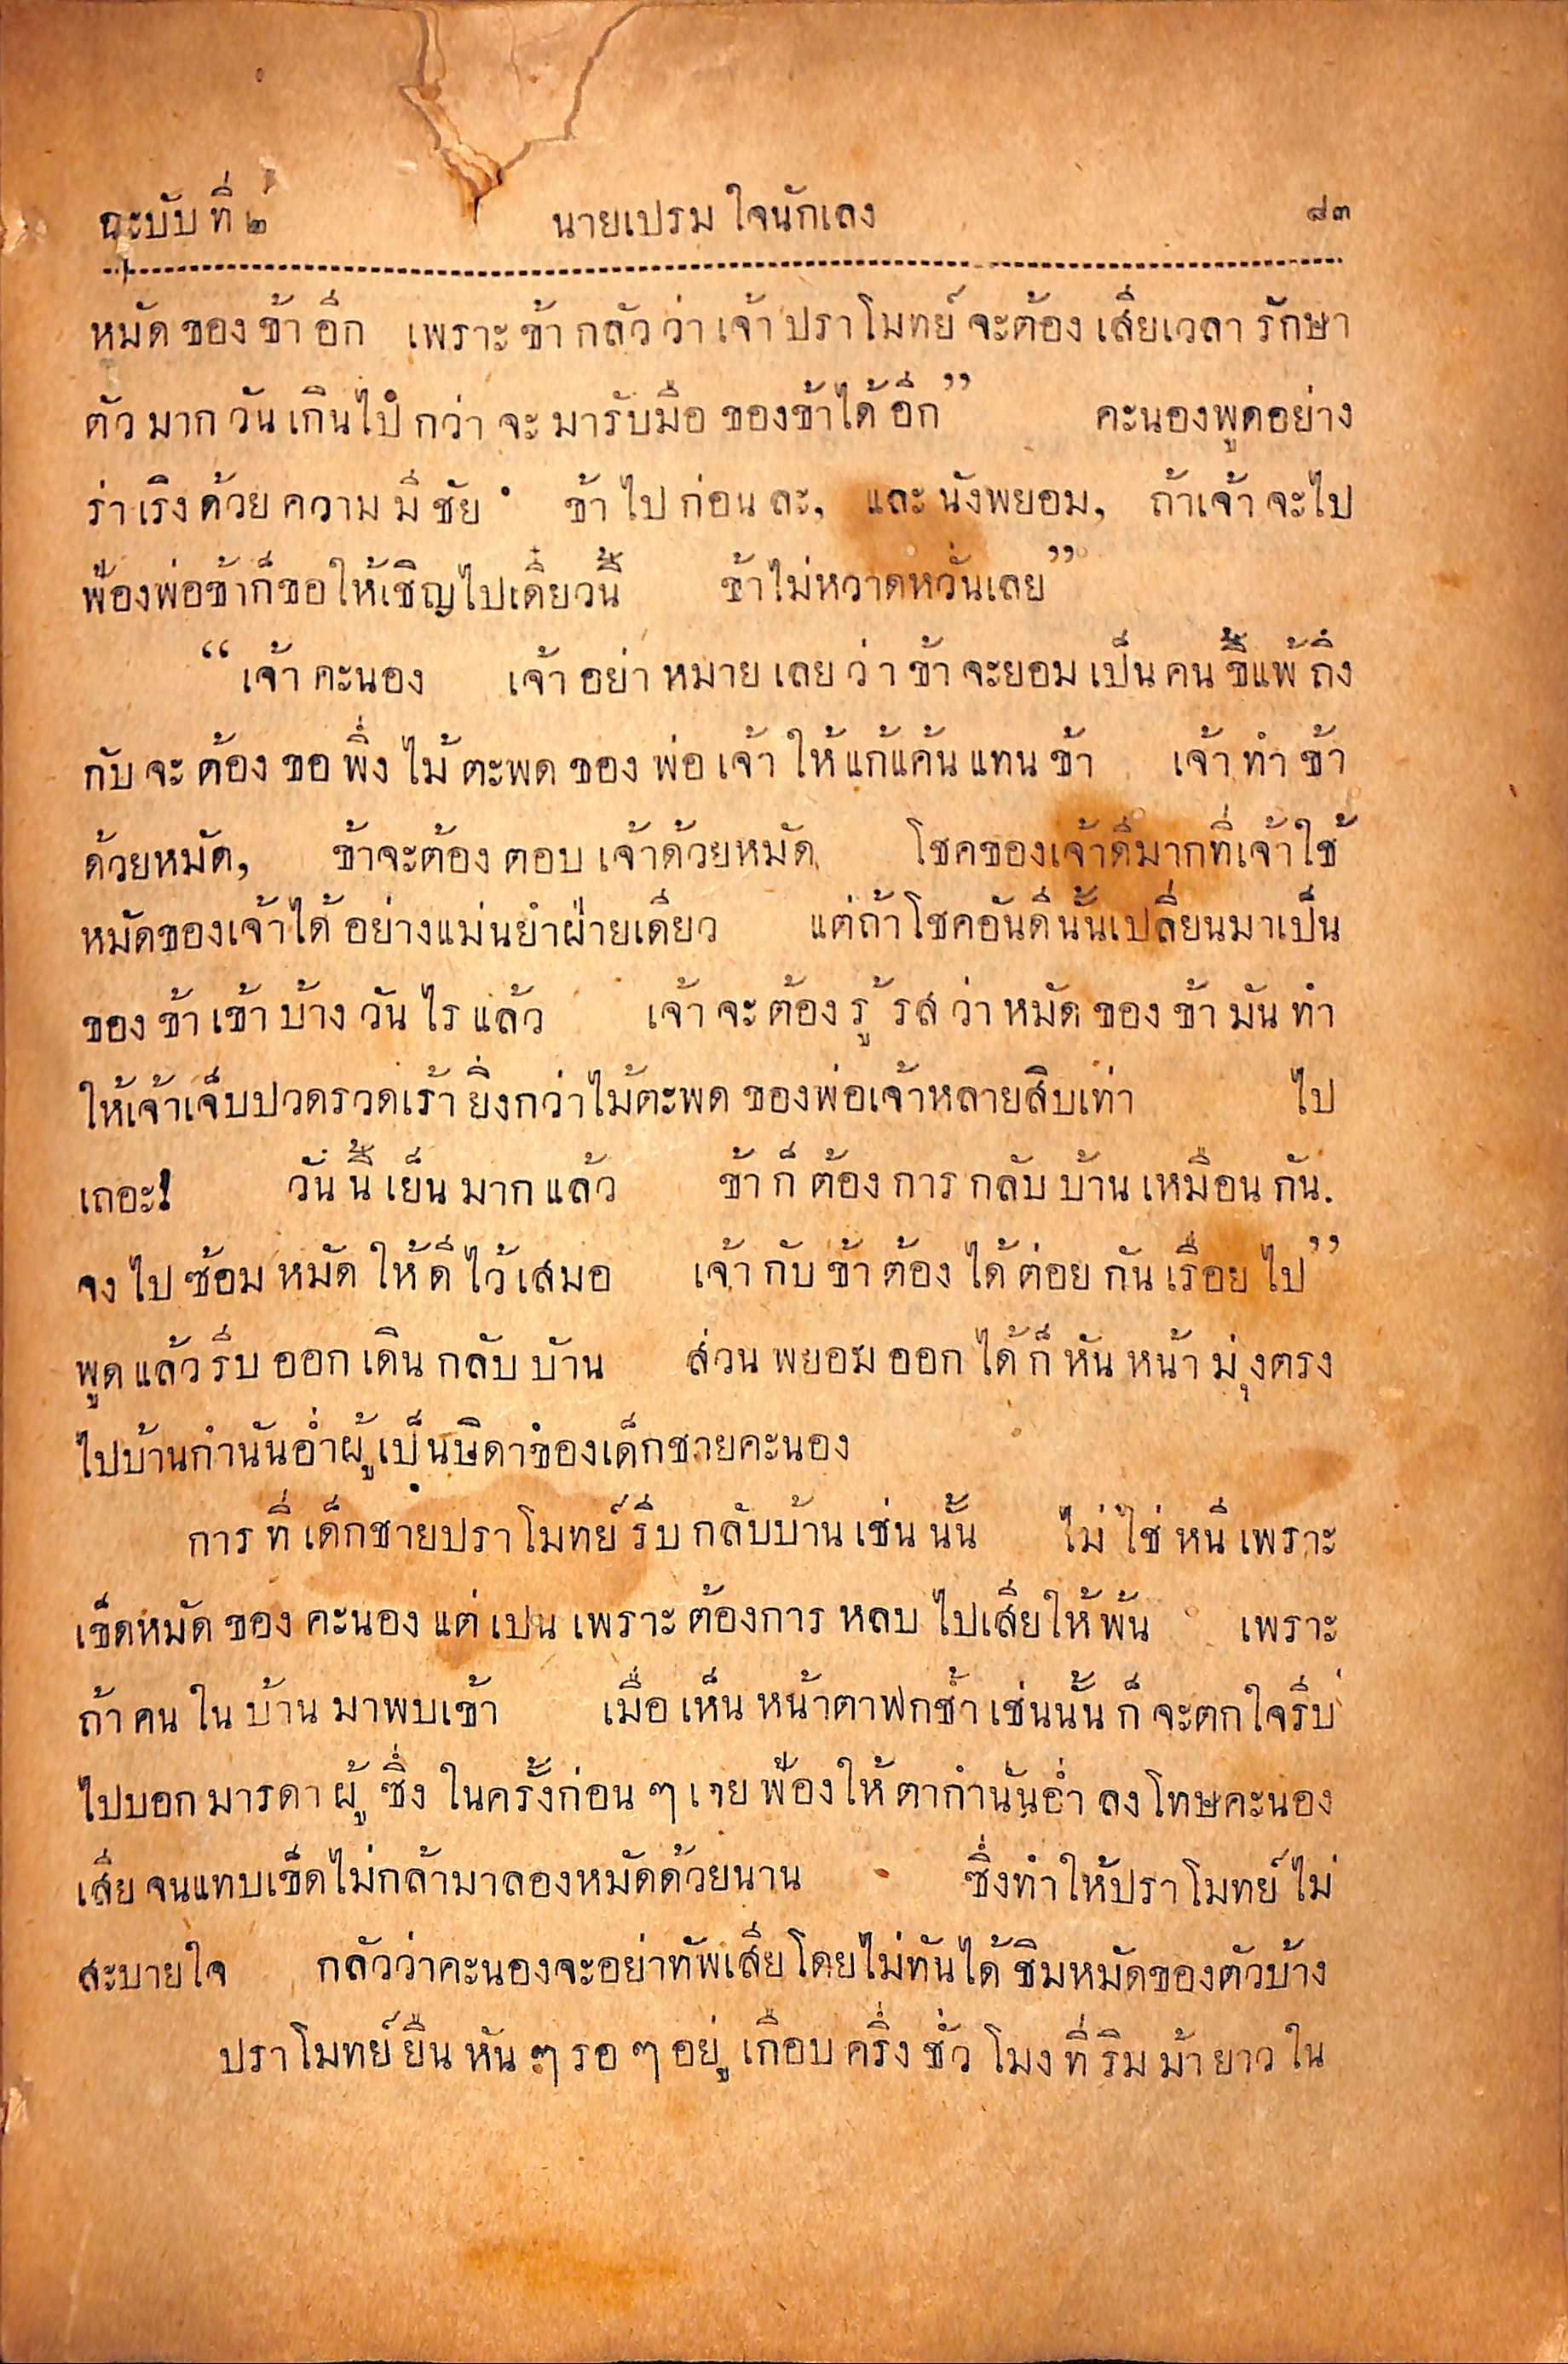 ฉะบับ ที่ ๒ นายเปรม ใจนักเลง ๘๓
หมัด ของ ข้า อีก เพราะ ข้า กลัว ว่า เจ้า ปราโมทย์ จะต้อง เสียเวลา รักษา
ตัว มาก วัน เกินไป กว่า จะ มารับมือ ของข้าได้ อีก” คะนองพูดอย่าง
ร่า เริง ด้วย ความ มี ชัย ข้า ไป ก่อน ละ, และ นังพยอม, ถ้าเจ้า จะไป
ฟ้องพ่อข้าก็ขอให้เชิญไปเดี๋ยวนี้ ข้าไม่หวาดหวั่นเลย”
“เจ้า คะนอง เจ้า อย่า หมาย เลย ว่า ข้า จะยอม เป็น คน ขี้แพ้ ถึง
กับ จะ ต้อง ขอ พึ่ง ไม้ ตะพด ของ พ่อ เจ้า ให้ แก้แค้น แทน ข้า เจ้า ทำ ข้า
ด้วยหมัด, ข้าจะต้อง ตอบ เจ้าด้วยหมัด โชคของเจ้าดีมากที่เจ้าใช้
หมัดของเจ้าได้ อย่างแม่นยำฝ่ายเดียว แต่ถ้าโชคอันดีนั้นเปลี่ยนมาเป็น
ของ ข้า เข้า บ้าง วัน ไร แล้ว เจ้า จะ ต้อง รู้ รส ว่า หมัด ของ ข้า มัน ทำ
ให้เจ้าเจ็บปวดรวดเร้า ยิ่งกว่าไม้ตะพด ของพ่อเจ้าหลายสิบเท่า ไป
เถอะ! วันนี้ เย็น มาก แล้ว ข้า ก็ ต้อง การ กลับ บ้าน เหมือน กัน.
จง ไป ซ้อม หมัด ให้ ดี ไว้ เสมอ เจ้า กับ ข้า ต้อง ได้ ต่อย กัน เรื่อย ไป”
พูด แล้ว รีบ ออก เดิน กลับ บ้าน ส่วน พยอม ออก ได้ ก็ หัน หน้า มุ่งตรง
ไปบ้านกำนันอ่ำผู้เป็นบิดาของเด็กชายคะนอง
การ ที่ เด็กชายปราโมทย์ รีบ กลับบ้าน เช่น นั้น ไม่ ใช่ หนี เพราะ
เข็ดหมัด ของ คะนอง แต่ เปน เพราะ ต้องการ หลบ ไปเสียให้ พ้น เพราะ
ถ้า คน ใน บ้าน มาพบเข้า เมื่อ เห็น หน้าตาฟกช้ำ เช่นนั้น ก็ จะตกใจรีบ
ไปบอก มารดา ผู้ ซึ่ง ในครั้งก่อน ๆ เคย ฟ้องให้ ตากำนันอ่ำ ลงโทษคะนอง
เสีย จนแทบเข็ดไม่กล้ามาลองหมัดด้วยนาน ซึ่งทำให้ปราโมทย์ ไม่
สะบายใจ กลัวว่าคะนองจะอย่าทัพเสียโดยไม่ทันได้ ชิมหมัดของตัวบ้าง
ปราโมทย์ ยืน หัน ๆ รอ ๆ อยู่ เกือบ ครึ่ง ชั่ว โมง ที่ ริม ม้า ยาว ใน